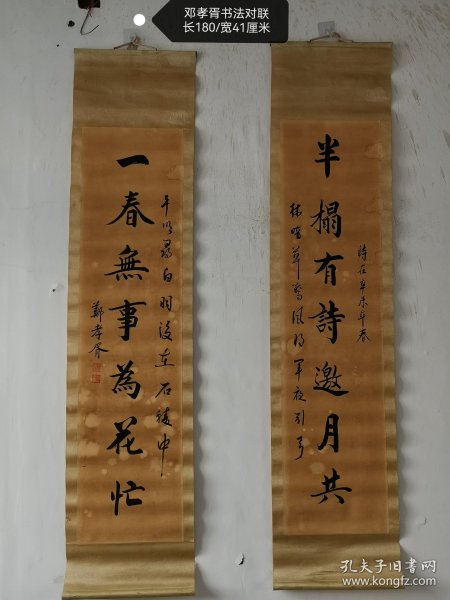 邓孝胥书法对联
长180/宽41厘米
半榻有詩邀月共
時在辛未年春
林暗草驚風將軍夜引弓
一春無事為花忙
平明尋白羽沒在石稜中
鄭孝胥
孔夫子旧书网
www.kongfz.com